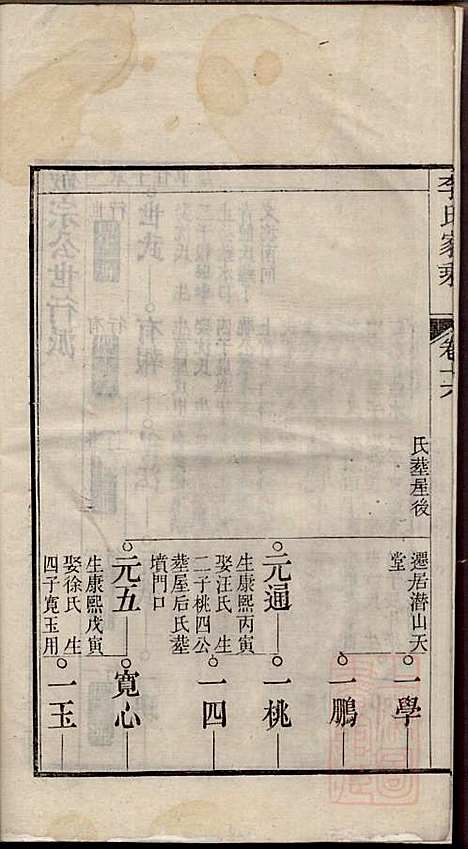 李氏家乘
卷十六
氏塟屋後
遷居潛山天
堂
一學
一鵬
元通
生康熙丙寅
娶汪氏 生
二子桃四公
塟屋后氏塟
墳門口
一桃
一四
元五
生康熙戊寅
娶徐氏 生
四子寬玉用
寬心
一玉